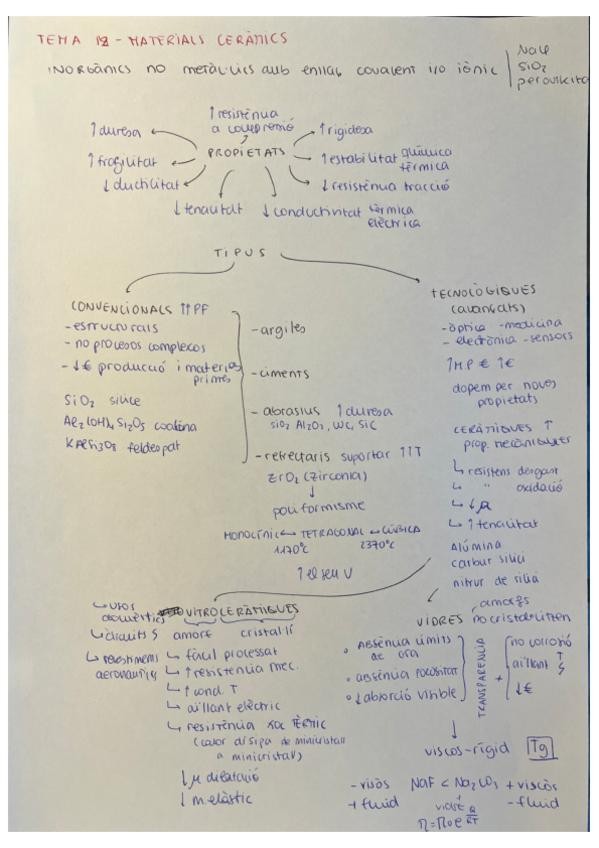 TEMA 12 - MATERIALS CERÀMICS
INORGÀNICS NO METÀL·LICS amb enllaç covalent i/o iònic
NaCl
SiO2
perovskita
PROPIETATS
↑ resistència
a compressió
↑ duresa
↑ rigidesa
↑ fragilitat
↑ estabilitat química
tèrmica
↓ ductilitat
↓ resistència tracció
↓ tenacitat
↓ conductivitat tèrmica
elèctrica
TIPUS
CONVENCIONALS ↑↑PF
- estructurals
- no processos complexos
- ↓€ producció i materies
primes
SiO2 sílice
Al2(OH)4 Si2O5 caolina
KAlSi3O8 feldespat
- argiles
- ciments
- abrasius ↑ duresa
SiO2 Al2O3, WC, SiC
- refractaris suportar ↑↑T
ZrO2 (Zirconia)
↓
polimorfisme
MONOCLÍNIC ↔ TETRAGONAL ↔ CÚBICA
1170ºC 2370ºC
↑ el seu V
TECNOLÒGIQUES
(avançats)
- òptica - medicina
- electrònica - sensors
↑M.P € ↑€
dopem per noves
propietats
CERÀMIQUES ↑
prop. mecàniques
↳ resistens desgast
↳ " oxidació
↳ ↓μ
↳ ↑ tenacitat
Alúmina
carbur silici
nitrur de silici
VITROCERÀMIQUES
amorf cristal·lí
↳ usos
domèstics
↳ circuits
↳ revestiments
aeronautics
↳ fàcil processat
↳ ↑ resistencia mec.
↳ ↑ cond. T
↳ aïllant elèctric
↳ resistència xoc TÈRMIC
(calor disipa de minicristall
a minicristall)
↓ μ dilatació
↓ m. elàstic
VIDRES
amorfs
no cristal·litzen
• ABSÈNCIA LÍMITS
de gra
• absència porositat
• ↓ absorció visible
TRANSPARENCIA
+
no corrosió
aïllant T
↓€
↓
viscos-rígid Tg
- viscós NaF < Na2CO3 + viscós
+ fluid - fluid
η = η0 e Q/RT